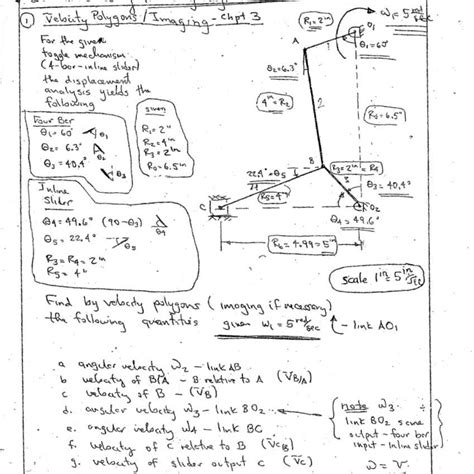 ① Velocity Polygons / Imaging - Chpt 3
For the given
toggle mechanism
(4-bar-inline slider)
the displacement
analysis yields the
following
Four Bar
θ₁ = 60° θ₁
θ₂ = 6.3° θ₂
θ₃ = 40.4° θ₃
given
R₁ = 2"
R₂ = 4"
R₃ = 2"
R₀ = 6.5"
Inline
Slider
θ₄ = 49.6° (90-θ₃) θ₄
θ₅ = 22.4° θ₅
R₃ = R₄ = 2"
R₅ = 4"
R₁ = 2"
ω₁ = 5 rad/sec
O₁
A
θ₁ = 60°
θ₂ = 6.3°
4" = R₂
2
R₀ = 6.5"
B
22.4° = θ₅
R₃ = 2" = R₄
R₅ = 4"
3
θ₃ = 40.4°
C
O₂
θ₄ = 49.6°
R₆ = 4.99 = 5"
scale 1 in = 5 in/sec
Find by velocity polygons (imaging if necessary)
the following quantities given ω₁ = 5 rad/sec - link AO₁
a angular velocity ω₂ - link AB
b velocity of B/A - B relative to A (V̄B/A)
c velocity of B - (V̄B)
d. angular velocity ω₃ - link BO₂
e. angular velocity ω₄ - link BC
f. velocity of C relative to B (V̄C/B)
g. velocity of slider output C (V̄C)
note ω₃
link BO₂ same
output - four bar
input - inline slider